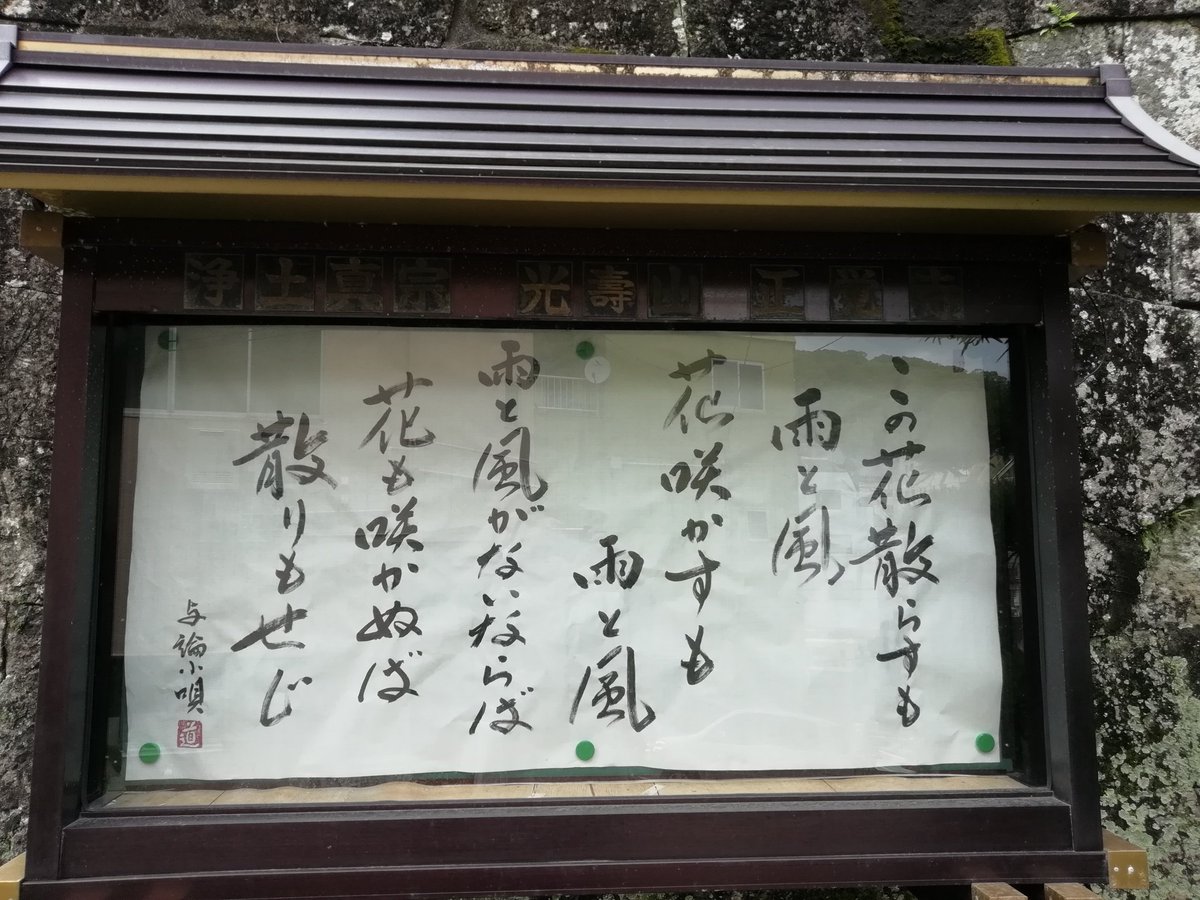 浄土真宗 光壽山 正覚寺
この花散らすも
雨と風
花咲かすも
雨と風
雨と風がないならば
花も咲かぬば
散りもせじ
与論小唄
道